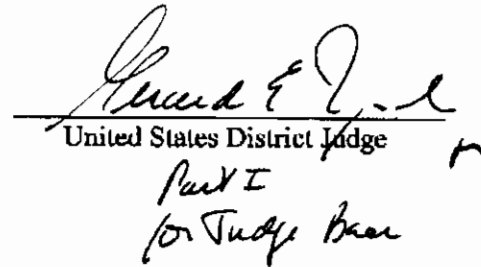 Gerard E. Lynch
United States District Judge
Part I
for Judge Baer